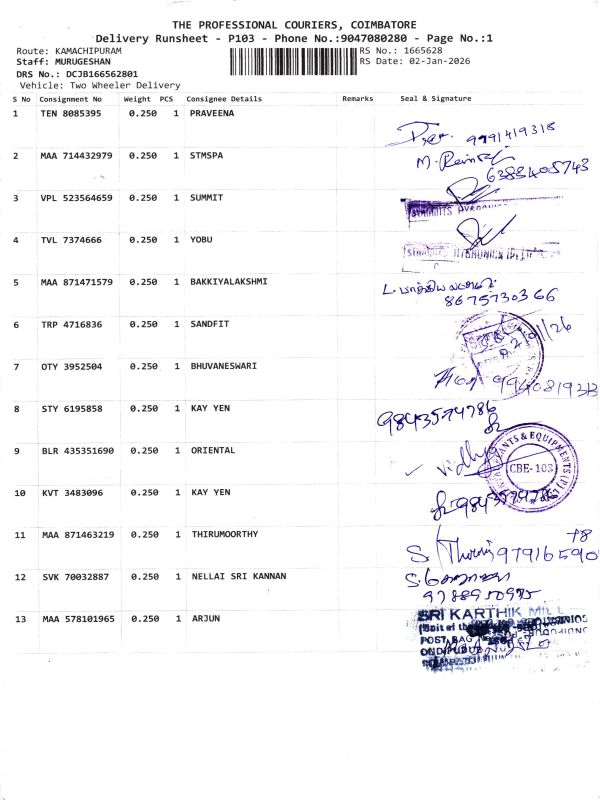 THE PROFESSIONAL COURIERS, COIMBATORE
Delivery Runsheet - P103 - Phone No.:9047080280 - Page No.:1
Route: KAMACHIPURAM RS No.: 1665628
Staff: MURUGESHAN RS Date: 02-Jan-2026
DRS No.: DCJB166562801
Vehicle: Two Wheeler Delivery
S No Consignment No Weight PCS Consignee Details Remarks Seal & Signature
1 TEN 8085395 0.250 1 PRAVEENA
9991419318
2 MAA 714432979 0.250 1 STMSPA
6383405743
3 VPL 523564659 0.250 1 SUMMIT
4 TVL 7374666 0.250 1 YOBU
5 MAA 871471579 0.250 1 BAKKIYALAKSHMI
8675730366
6 TRP 4716836 0.250 1 SANDFIT
7 OTY 3952504 0.250 1 BHUVANESWARI
8 STY 6195858 0.250 1 KAY YEN 9843574786
9 BLR 435351690 0.250 1 ORIENTAL Vidhya
& EQUIPMENTS (P)
CBE-103
10 KVT 3483096 0.250 1 KAY YEN 9843574786
11 MAA 871463219 0.250 1 THIRUMOORTHY
78
97916590
12 SVK 70032887 0.250 1 NELLAI SRI KANNAN
9788950975
13 MAA 578101965 0.250 1 ARJUN
SRI KARTHIK MILL
POST BAG